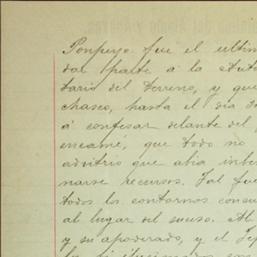 Ponpeyo fue el ultim
dar parte á la Auto
tario del terreno, y que
chasco, hasta el dia
á confesar delante del
encame, que todo no
advitrio que abia inter
narse recursos. Tal fue
todos los contornos consu
al lugar del suceso. Al
y su apoderado, y el